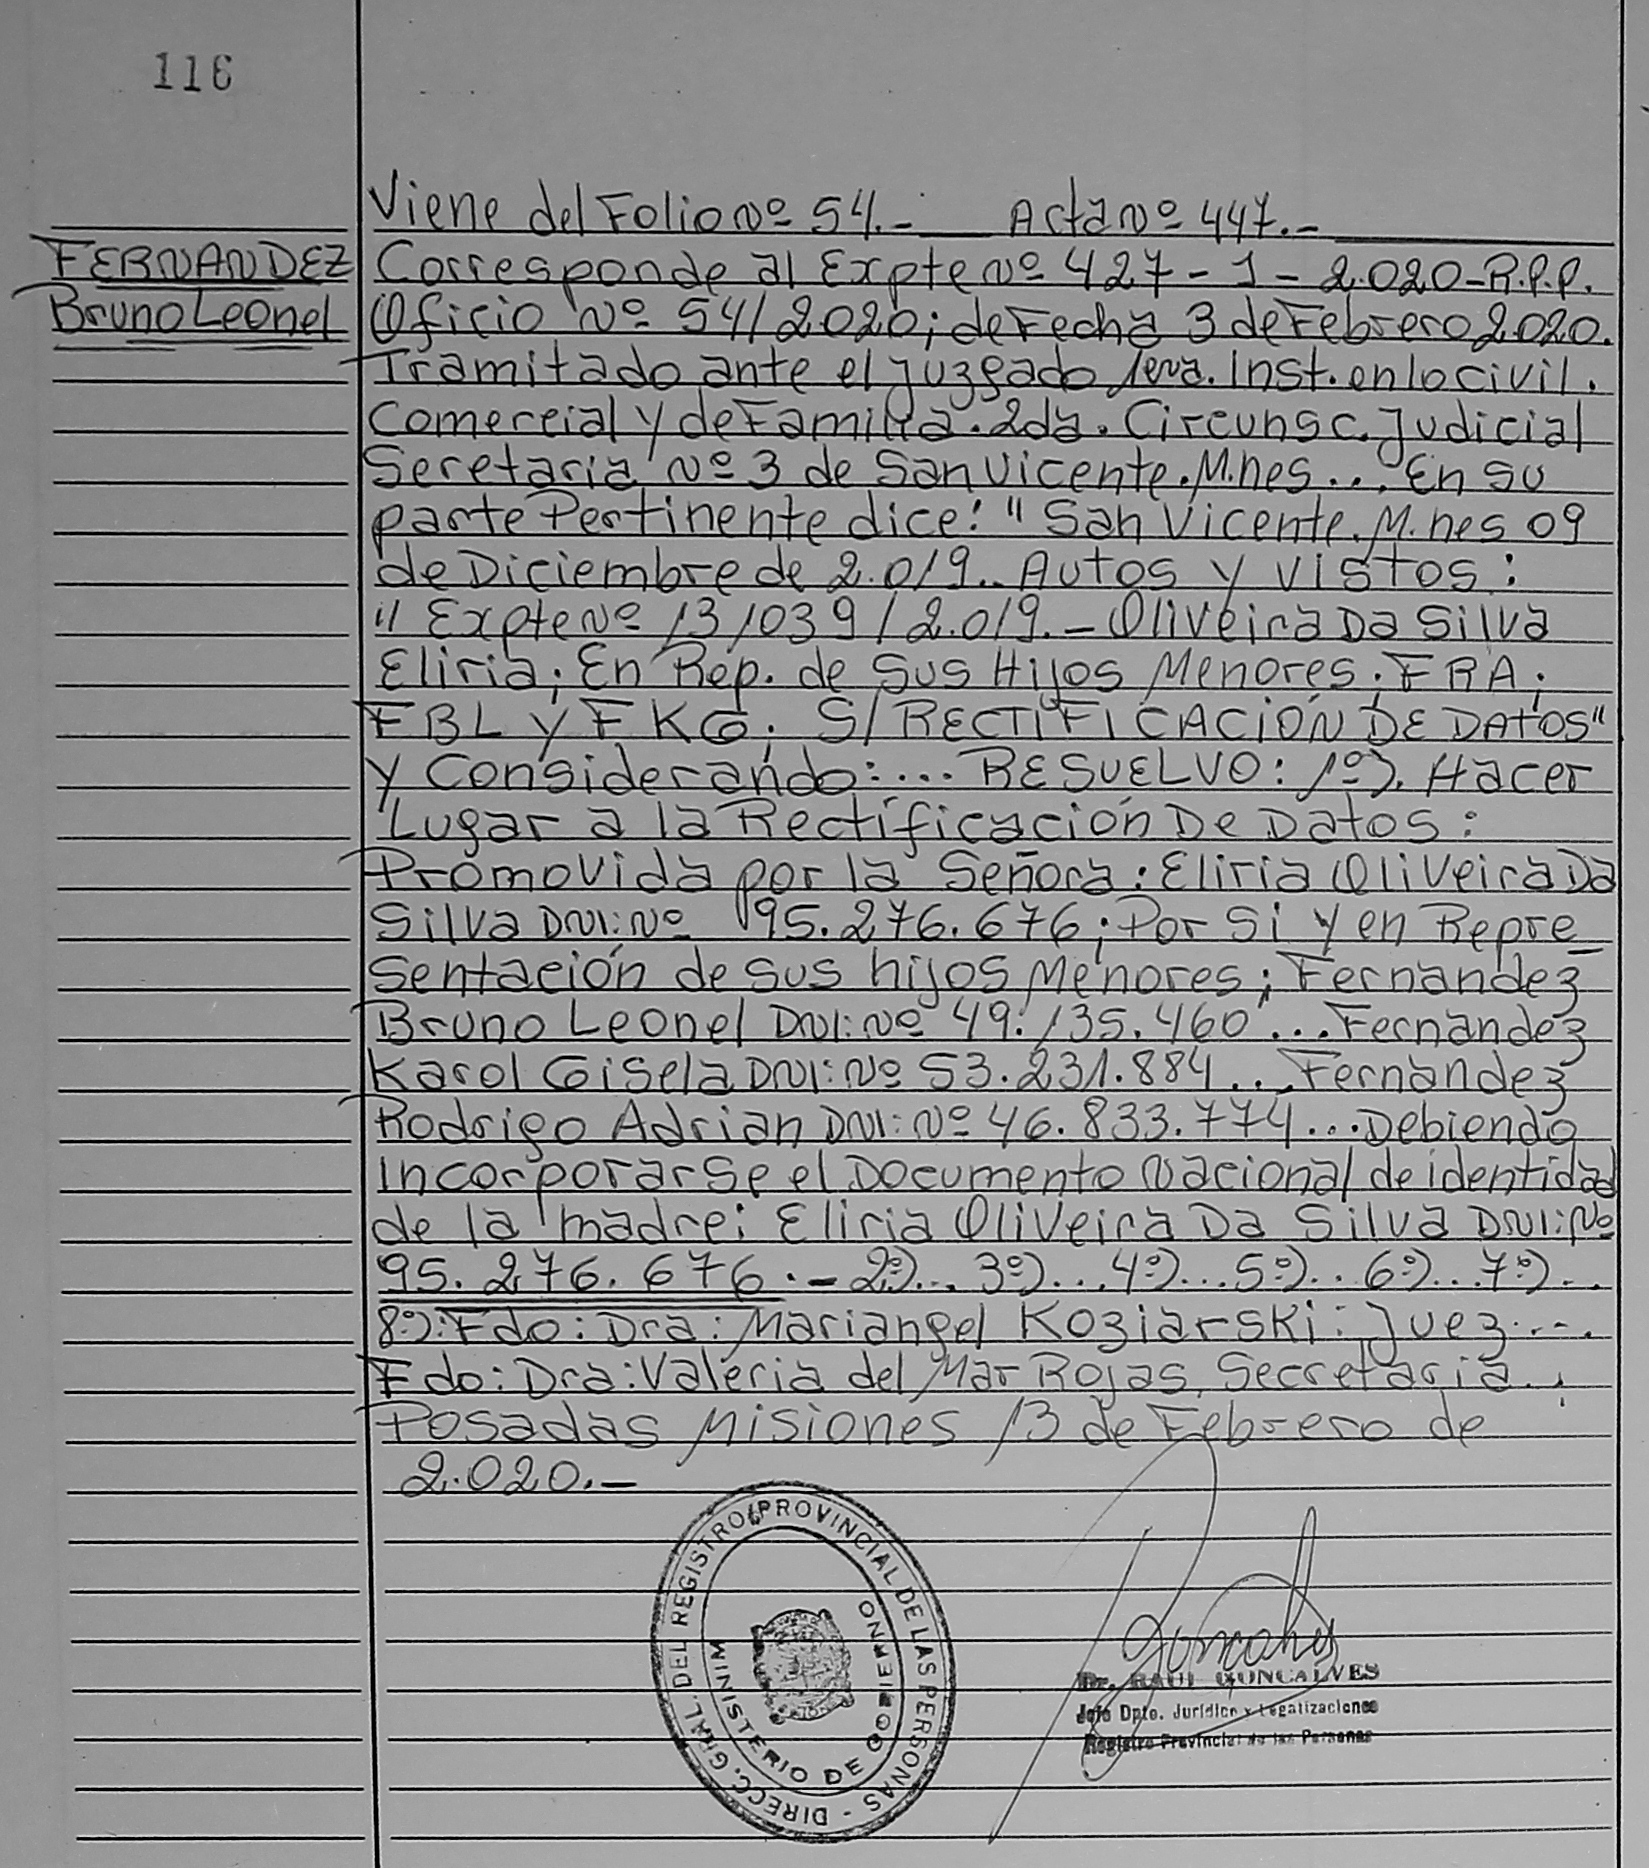 116
Viene del Folio Nº 54.- Acta Nº 447.-
FERNANDEZ
Bruno Leonel
Corresponde al Expte Nº 427-1-2.020-R.P.P.
Oficio Nº 54/2020; de Fecha 3 de Febrero 2020.
Tramitado ante el Juzgado 1era. Inst. en lo civil.
Comercial y de Familia. 2da. Circunsc. Judicial
Secretaria Nº 3 de San Vicente. M.nes... En su
parte Pertinente dice: "San Vicente. M.nes 09
de Diciembre de 2.019.. Autos y vistos:
"Expte Nº 131039/2.019.- Oliveira Da Silva
Eliria; En Rep. de Sus Hijos Menores; FRA;
FBL y FKG; S/RECTIFICACIÓN DE DATOS"
y Considerando:... RESUELVO: 1º). Hacer
Lugar a la Rectificación De Datos:
Promovida por la Señora: Eliria Oliveira Da
Silva DNI: Nº 95.276.676; Por Si y en Repre
sentación de sus hijos Menores; Fernandez
Bruno Leonel DNI: Nº 49.135.460... Fernandez
Karol Gisela DNI: Nº 53.231.884... Fernandez
Rodrigo Adrian DNI: Nº 46.833.774... Debiendo
incorporarse el Documento Nacional de identidad
de la madre: Eliria Oliveira Da Silva DNI: Nº
95.276.676.- 2º)... 3º)... 4º)... 5º)... 6º)... 7º)...
8º): Fdo: Dra: Mariangel Koziarski: Juez....
Fdo: Dra: Valeria del Mar Rojas Secretaria..
Posadas Misiones 13 de Febrero de
2.020.-
DIRECC. GRAL. DEL REGISTRO PROVINCIAL DE LAS PERSONAS -
MINISTERIO DE GOBIERNO
Dr. RAUL GONCALVES
Jefe Dpto. Jurídico y Legalizaciones
Registro Provincial de las Personas